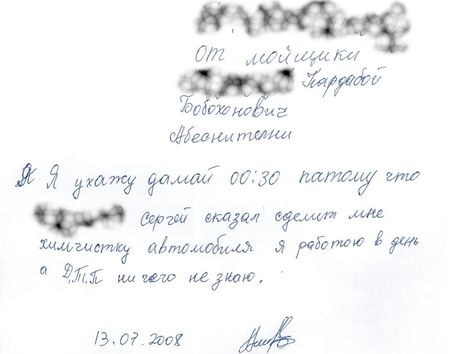 От мойщики
Кардабой
Бобохонович
Абеснителни
Я Я ухажу дамай 00:30 патому что
Сергей сказал сделит мне
химчистку автомобиля я работою в день
а Д.Т.П ничего не знаю.
13.07.2008